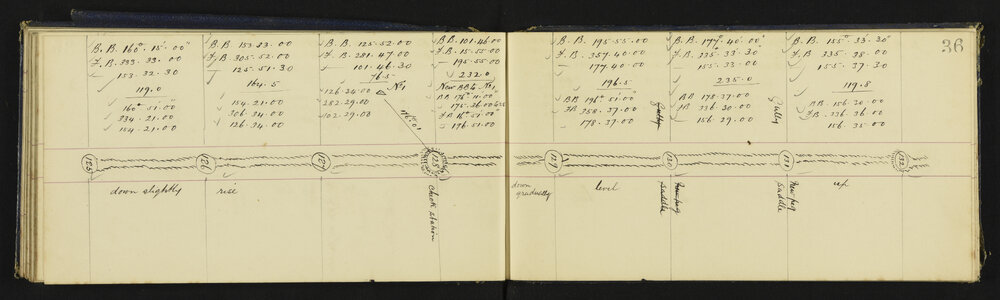 36
B.B. 160°.15'.00"
F.B. 333.33.00
153.32.30
119.0
160°.51'.00"
334.21.00
154.21.00
B.B. 153.33.00
F.B. 305.52.00
125.51.30
164.5
154.21.00
306.34.00
126.34.00
B.B. 125.52.00
F.B. 281.47.00
101.46.30
76.5
126.34.00
282.29.00
102.29.00
No 1
16.0
B.B. 101.46.00
F.B. 15.55.00
195.55.00
232.0
New BB to No 1
BB 176°.11.00
175.26.00
F.B 16°.51'.00"
196.51.00
B.B. 195.55.00
F.B. 357.40.00
177.40.00
196.5
BB 196°.51'.00"
FB 358.37.00
178.37.00
Gully
B.B. 177°.40'.00"
F.B. 335°.33'.30"
155.33.00
235.0
BB 178.37.00
FB 336.30.00
156.29.00
Gully
B.B. 155°.33'.30"
F.B. 335.38.00
155.37.30
119.8
BB. 156.30.00
F.B. 336.36.00
156.35.00
125
126
127
128
129
130
131
132
down slightly
rise
check station
down
gradually
level
New peg
saddle
New peg
saddle
up